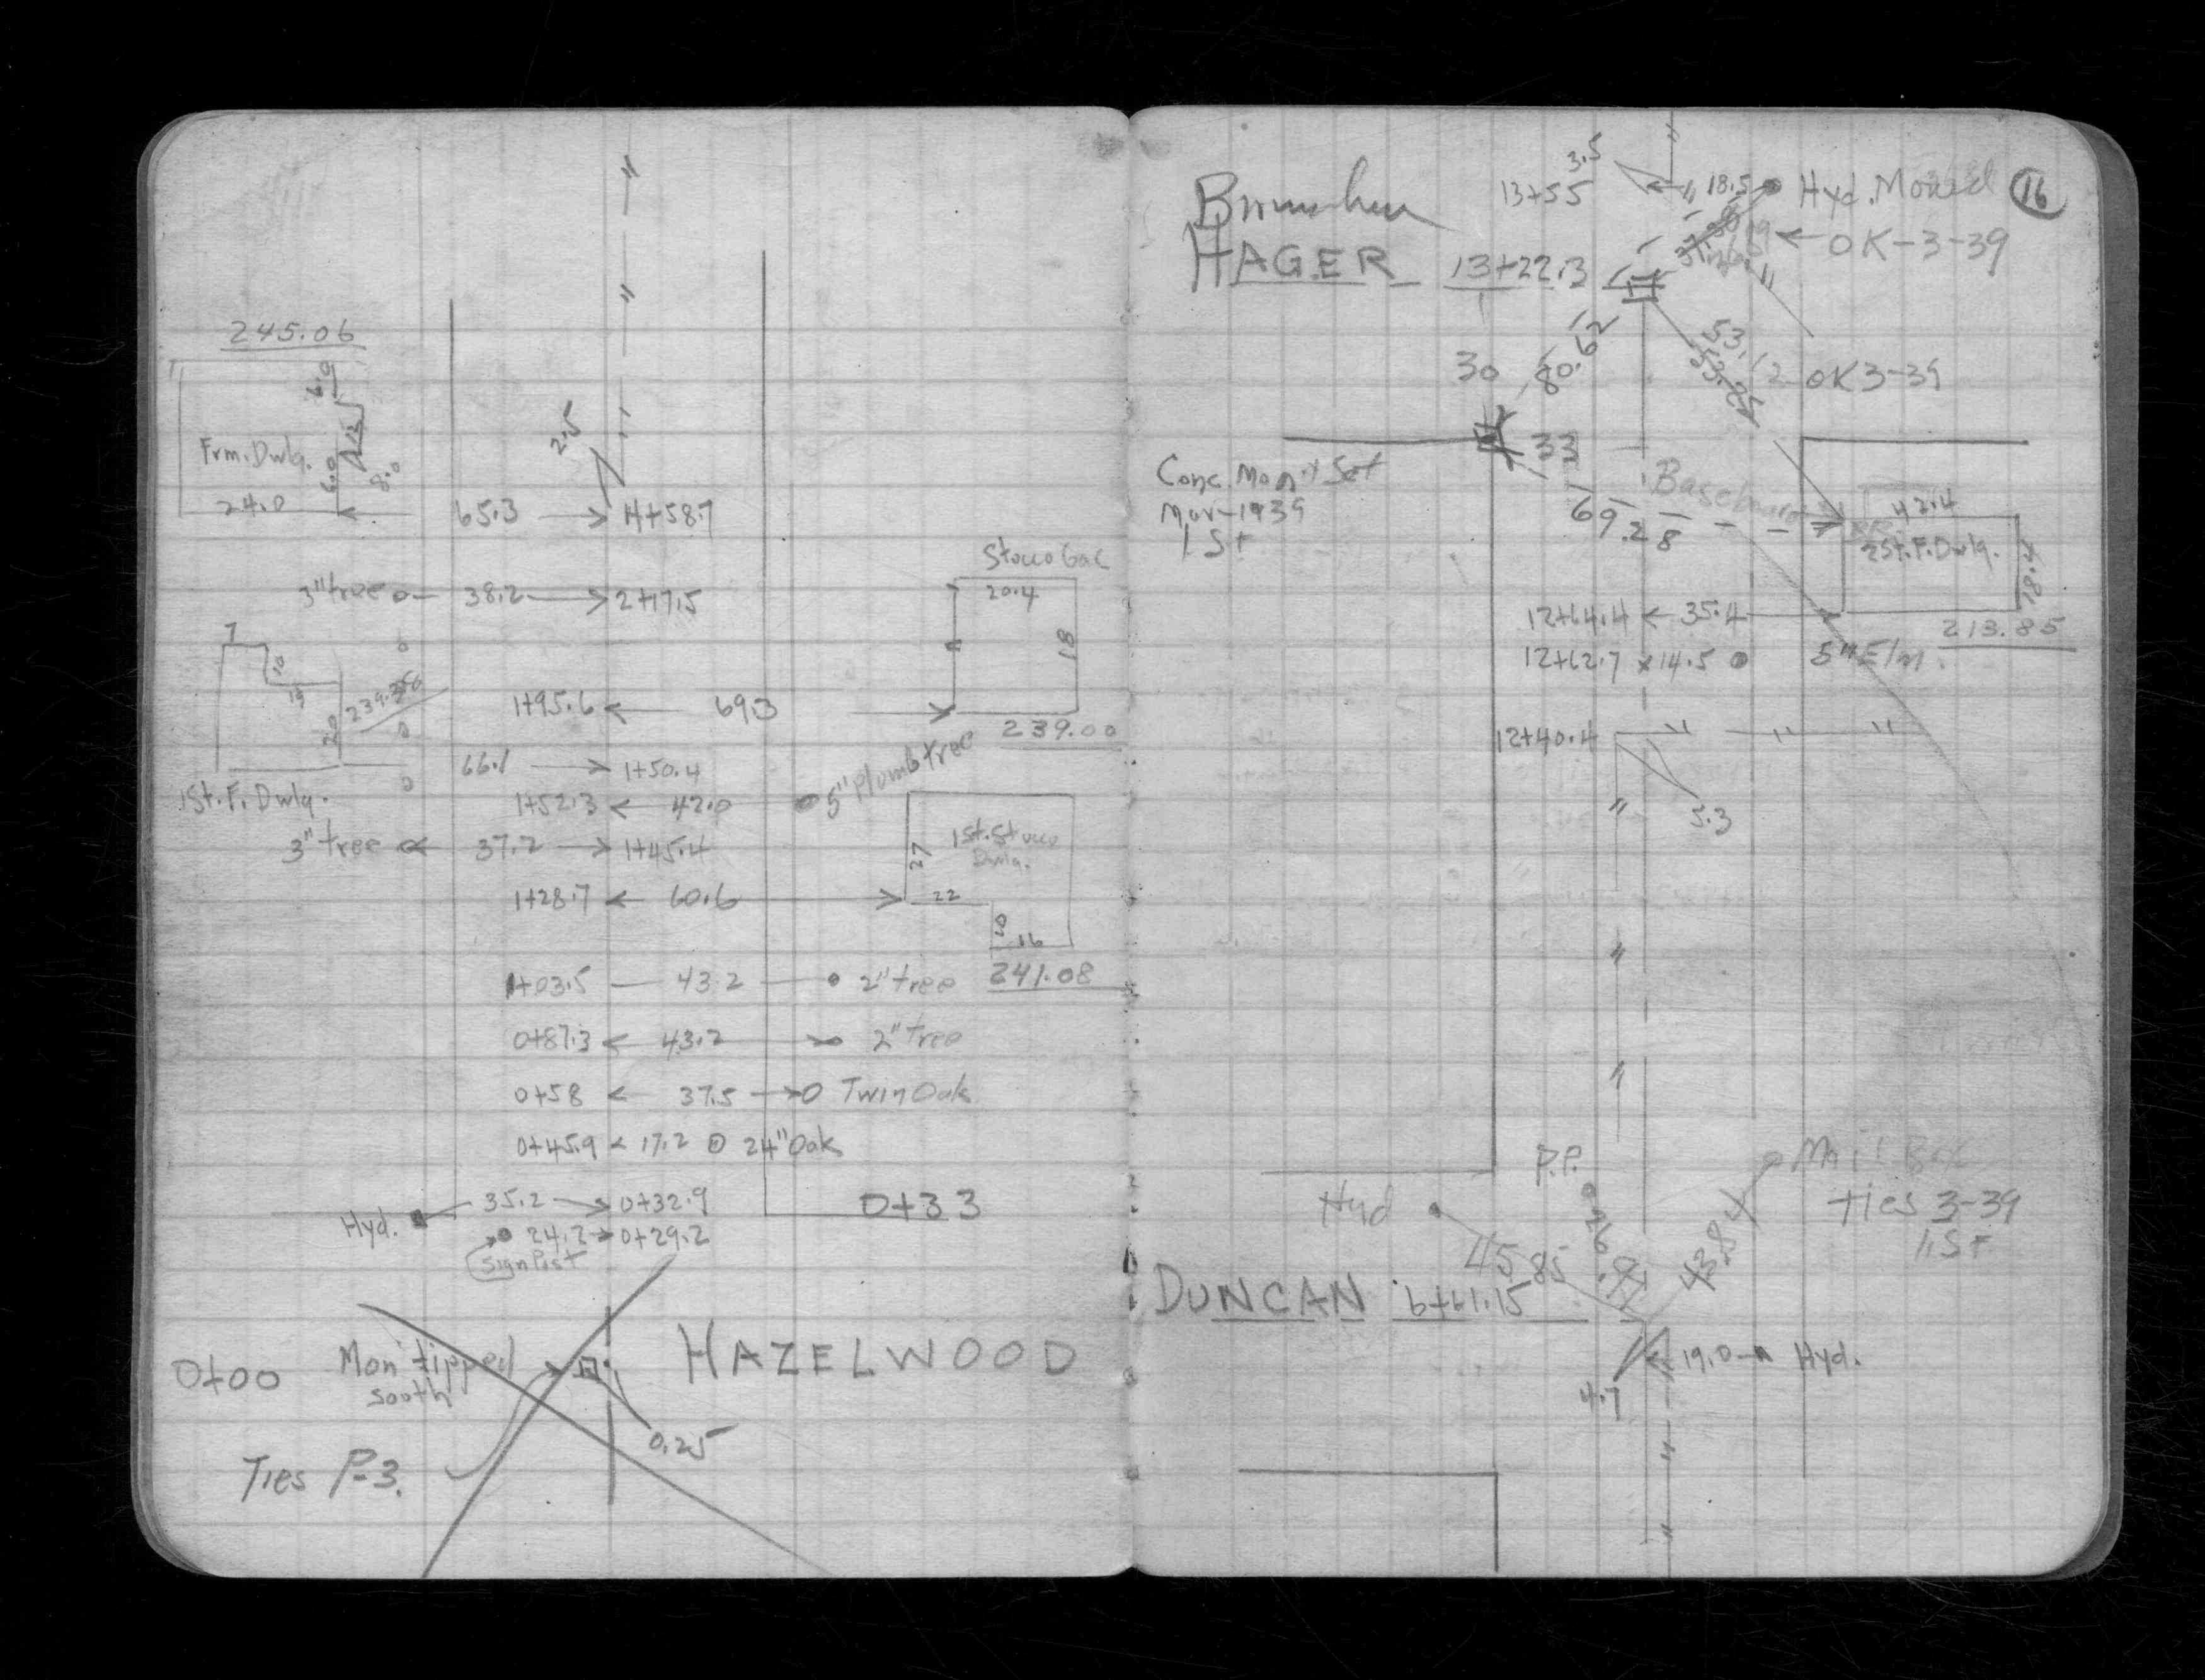 245.06
6.0
12
Frm. Dwlg.
6.0
8.0
24.0
2.5
65.3 4+58.7
3" tree 38.2 2+17.5
Stucco Gar
20.4
18
7
10
19
20
1+95.6 69.3
239.00
66.1 1+50.4
1St. F. Dwlg.
1+52.3 42.0 5" Plumb tree
3" tree 37.2 1+45.4
1St. Stucco
Dwlg.
27
22
1+28.7 60.6
10
16
241.08
1+03.5 43.2 2" tree
0+87.3 43.2 2" tree
0+58 37.5 Twin Oak
0+45.9 17.2 24" Oak
Hyd. 35.2 0+32.9
0+33
24.2 0+29.2
Sign Post
0+00 Mon tipped
South
HAZELWOOD
0.25
Ties P-3.
16
3.5
13+55 18.5 Hyd. Moved
OK-3-39
HAGER 13+22.3
30 80.62
53.12
53.25
OK 3-39
33
Conc. Mon't Set
Mar-1939
1St
69.28
42.4
2St. F. Dwlg.
18.4
12+64.4 35.4
213.85
12+62.7 14.5 5" Elm.
12+40.4
3.3
P.P.
Mail Box
Hyd
Ties 3-39
45.85
43.84
DUNCAN 6+61.15
19.0 Hyd.
4.7